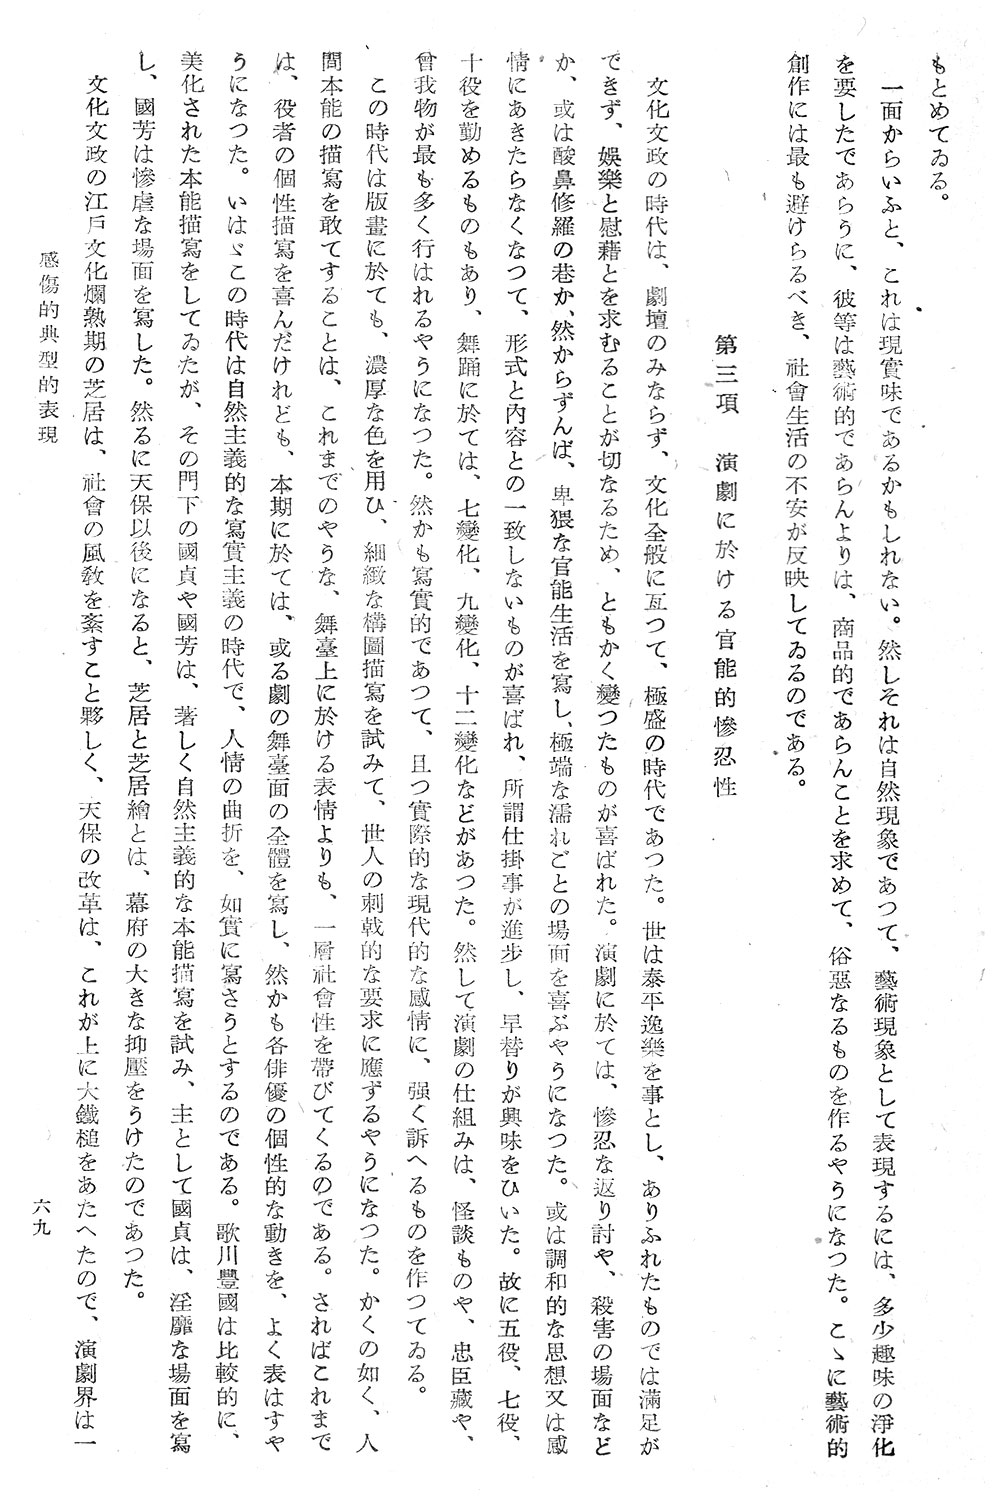 もとめてゐる。
一面からいふと、これは現實味であるかもしれない。然しそれは自然現象であつて、藝術現象として表現するには、多少趣味の淨化
を要したであらうに、彼等は藝術的であらんよりは、商品的であらんことを求めて、俗惡なるものを作るやうになつた。こゝに藝術的
創作には最も避けらるべき、社會生活の不安が反映してゐるのである。
第三項　演劇に於ける官能的慘忍性
文化文政の時代は、劇壇のみならず、文化全般に亙つて、極盛の時代であつた。世は泰平逸樂を事とし、ありふれたものでは滿足が
できず、娛樂と慰藉とを求むることが切なるため、ともかく變つたものが喜ばれた。演劇に於ては、慘忍な返り討や、殺害の場面など
か、或は酸鼻修羅の巷か、然からずんば、卑猥な官能生活を寫し、極端な濡れごとの場面を喜ぶやうになつた。或は調和的な思想又は感
情にあきたらなくなつて、形式と內容との一致しないものが喜ばれ、所謂仕掛事が進步し、早替りが興味をひいた。故に五役、七役、
十役を勤めるものもあり、舞踊に於ては、七變化、九變化、十二變化などがあつた。然して演劇の仕組みは、怪談ものや、忠臣藏や、
曾我物が最も多く行はれるやうになつた。然かも寫實的であつて、且つ實際的な現代的な感情に、强く訴へるものを作つてゐる。
この時代は版畫に於ても、濃厚な色を用ひ、細緻な構圖描寫を試みて、世人の刺戟的な要求に應ずるやうになつた。かくの如く、人
間本能の描寫を敢てすることは、これまでのやうな、舞臺上に於ける表情よりも、一層社會性を帶びてくるのである。さればこれまで
は、役者の個性描寫を喜んだけれども、本期に於ては、或る劇の舞臺面の全體を寫し、然かも各俳優の個性的な動きを、よく表はすや
うになつた。いはゞこの時代は自然主義的な寫實主義の時代で、人情の曲折を、如實に寫さうとするのである。歌川豐國は比較的に、
美化された本能描寫をしてゐたが、その門下の國貞や國芳は、著しく自然主義的な本能描寫を試み、主として國貞は、淫靡な場面を寫
し、國芳は慘虐な場面を寫した。然るに天保以後になると、芝居と芝居繪とは、幕府の大きな抑壓をうけたのであつた。
文化文政の江戶文化爛熟期の芝居は、社會の風敎を紊すこと夥しく、天保の改革は、これが上に大鐵槌をあたへたので、演劇界は一
感傷的典型的表現
六九